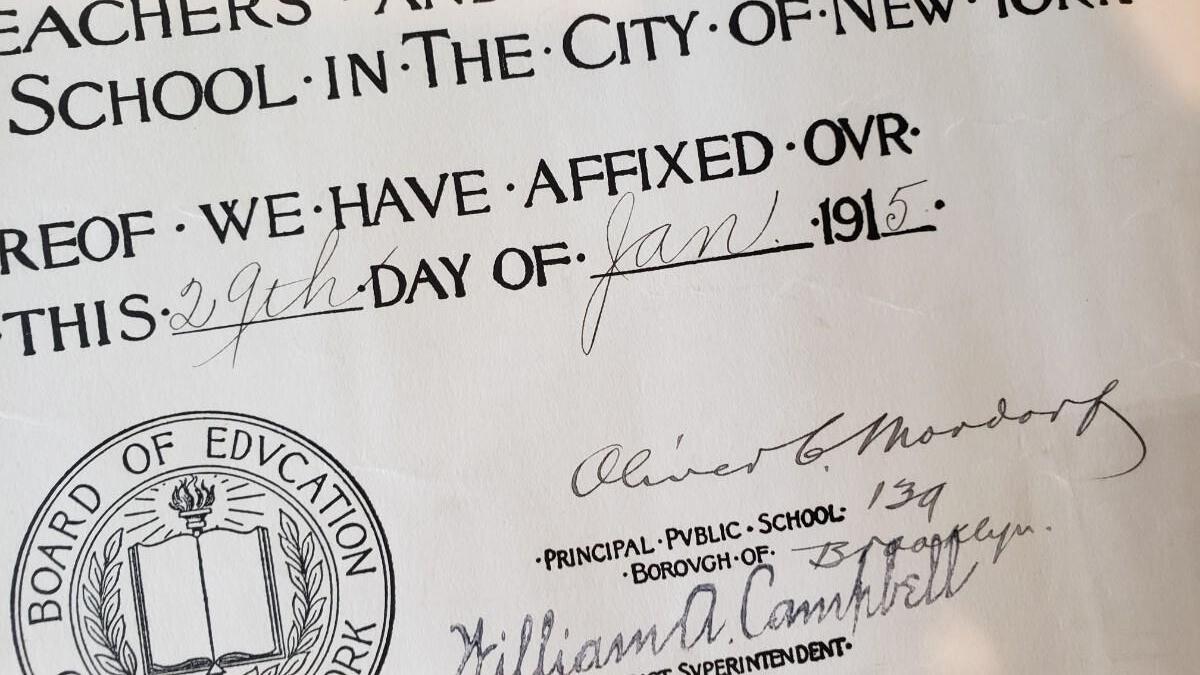 TEACHERS · AND
SCHOOL · IN · THE · CITY · OF · NEW · YORK
REOF · WE · HAVE · AFFIXED · OVR ·
· THIS · 29th · DAY OF · Jan. · 1915 ·
BOARD OF EDVCATION
Oliver C. Mordorf
· PRINCIPAL · PVBLIC · SCHOOL · 139
· BOROVGH · OF · Brooklyn.
William A. Campbell
SVPERINTENDENT ·